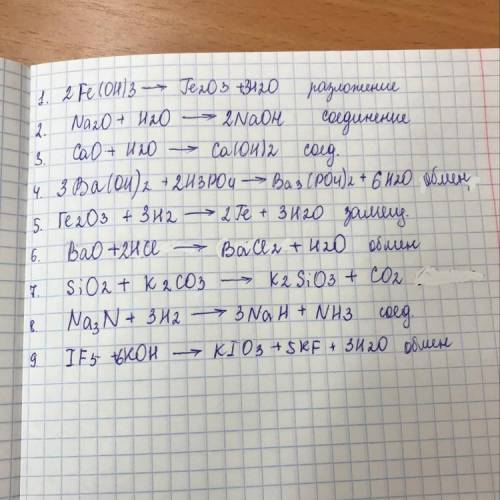 1. 2Fe(OH)3 → Fe2O3 + 3H2O разложение
2. Na2O + H2O → 2NaOH соединение
3. CaO + H2O → Ca(OH)2 соед.
4. 3Ba(OH)2 + 2H3PO4 → Ba3(PO4)2 + 6H2O обмен
5. Fe2O3 + 3H2 → 2Fe + 3H2O замещ.
6. BaO + 2HCl → BaCl2 + H2O обмен
7. SiO2 + K2CO3 → K2SiO3 + CO2
8. Na3N + 3H2 → 3NaH + NH3 соед.
9. IF5 + 6KOH → KIO3 + 5KF + 3H2O обмен